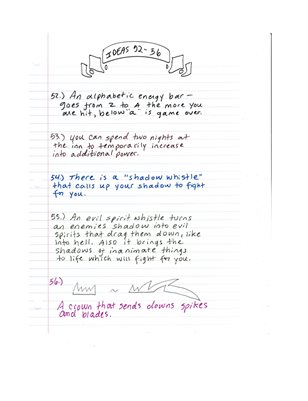 IDEAS 52-56
52.) An alphabetic energy bar -
goes from Z to A the more you
are hit, below "a" is game over.
53.) You can spend two nights at
the inn to temporarily increase
into additional power.
54.) There is a "shadow whistle"
that calls up your shadow to fight
for you.
55.) An evil spirit whistle turns
an enemies shadow into evil
spirits that drag them down, like
into hell. Also it brings the
shadows of inanimate things
to life which will fight for you.
56.)
A crown that sends downs spikes
and blades.